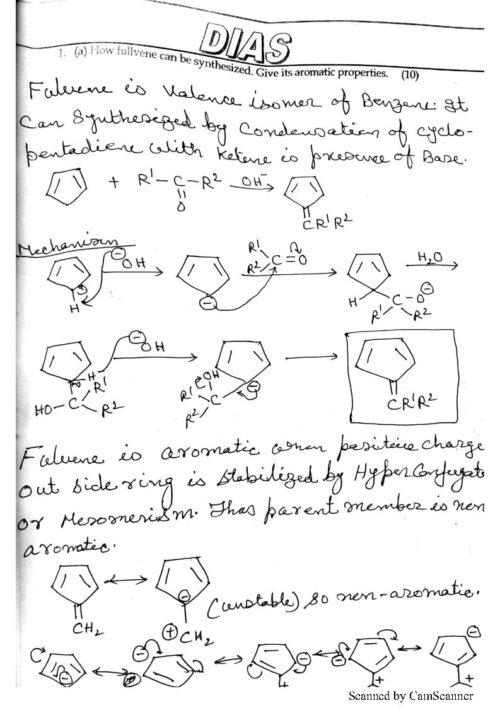 DIAS
1. (a) How fullvene can be synthesized. Give its aromatic properties. (10)
Fulvene is Valence isomer of Benzene. It
Can Synthesized by Condensation of cyclo-
pentadiene with Ketene is presence of Base.
+ R¹-C-R² OH⁻
O
CR¹R²
Mechanism
⊖OH R¹ R² C=O H₂O
H ⊖ H C-O⊖
R¹ R²
⊖OH
H R¹ R¹ C OH ⊖
HO-C R² R² CR¹R²
Fulvene is aromatic when positive charge
out side ring is stabilized by Hyper Conjugat
or Mesomerism. Thas parent member is non
aromatic.
CH₂ ⊕CH₂ (unstable) so non-aromatic.
⊖ ⊖ ⊖ ⊖ ⊖
⊕ + + +
Scanned by CamScanner